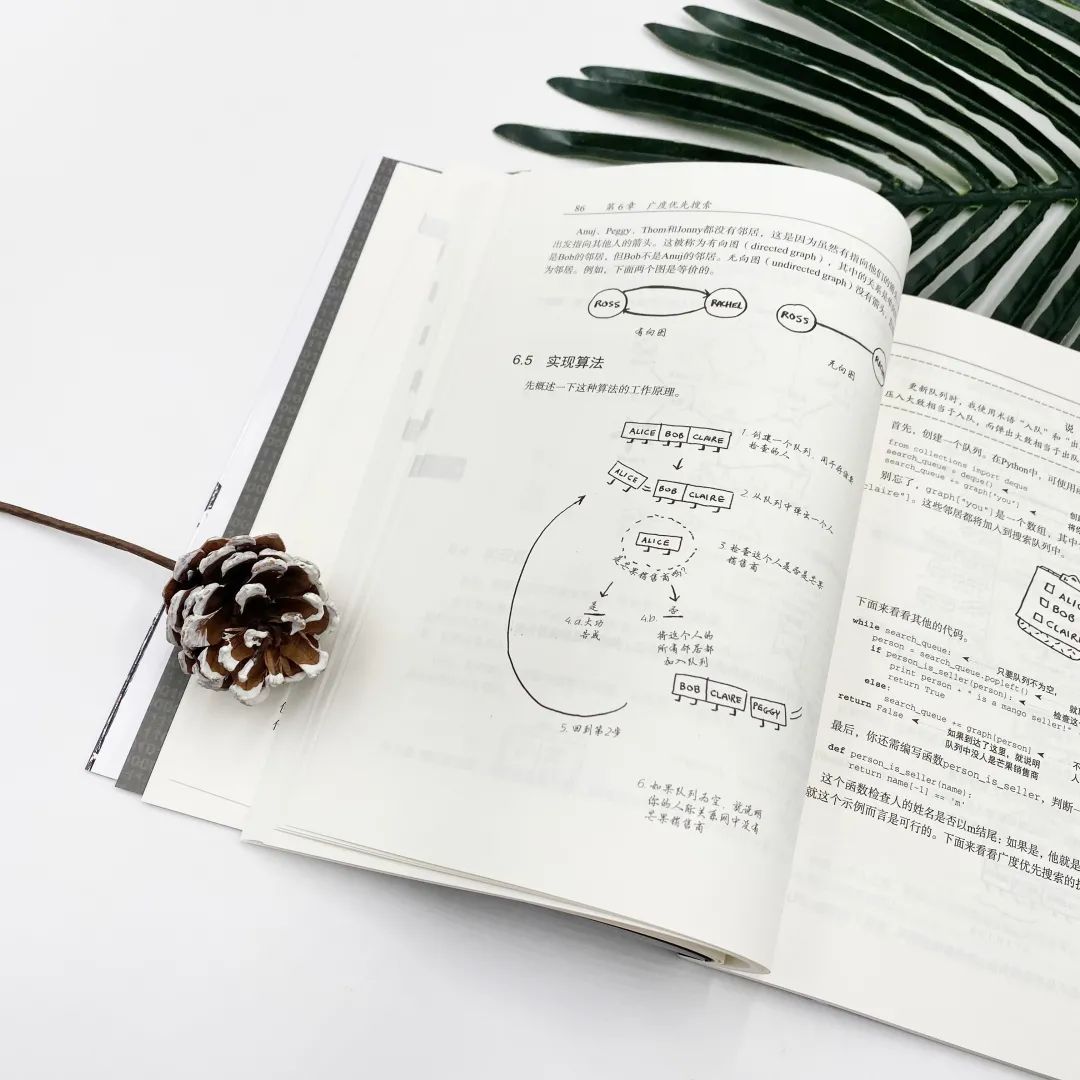 86 第6章 广度优先搜索
Anuj、Peggy、Thom和Jonny都没有邻居，这是因为虽然有指向他们的箭头
出发指向其他人的箭头。这被称为有向图（directed graph），其中的关系是单
是Bob的邻居，但Bob不是Anuj的邻居。无向图（undirected graph）没有箭头，
为邻居。例如，下面两个图是等价的。
ROSS RACHEL
有向图
ROSS
无向图
6.5 实现算法
先概述一下这种算法的工作原理。
ALICE BOB CLAIRE
1. 创建一个队列，用于存储要
检查的人
ALICE = BOB CLAIRE
2. 从队列中弹出一个人
ALICE
3. 检查这个人是否是芒果
销售商
是芒果销售商吗?
是
4.a. 大功
告成
否
4.b.
将这个人的
所有邻居都
加入队列
BOB CLAIRE PEGGY
5. 回到第2步
6. 如果队列为空，就说明
你的人际关系网中没有
芒果销售商
说
更新队列时，我使用术语“入队”和“出
压入大致相当于入队，而弹出大致相当于出队
首先，创建一个队列。在Python中，可使用
from collections import deque
search_queue = deque()
search_queue += graph["you"]
别忘了，graph["you"]是一个数组，其中
claire"]。这些邻居都将加入到搜索队列中。
ALIC
BOB
CLAIR
下面来看看其他的代码。
while search_queue:
只要队列不为空，
person = search_queue.popleft()
if person_is_seller(person):
print person + " is a mango seller!"
return True
else:
search_queue += graph[person]
return False
如果到达了这里，就说明
队列中没人是芒果销售商
最后，你还需编写函数person_is_seller，判断一
def person_is_seller(name):
return name[-1] == 'm'
这个函数检查人的姓名是否以m结尾：如果是，他就是
就这个示例而言是可行的。下面来看看广度优先搜索的执